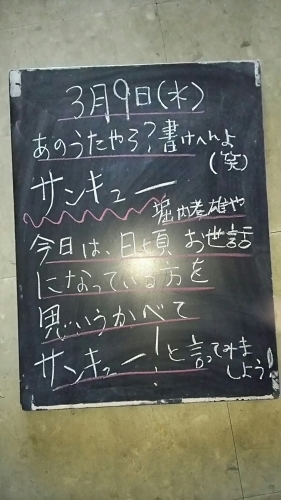 3月9日(水)
あのうたやろ?書けへんよ
(笑)
サンキュー
堀内孝雄や
今日は、日頃お世話
になっている方を
思いうかべて
サンキュー!と言ってみま
しよう!